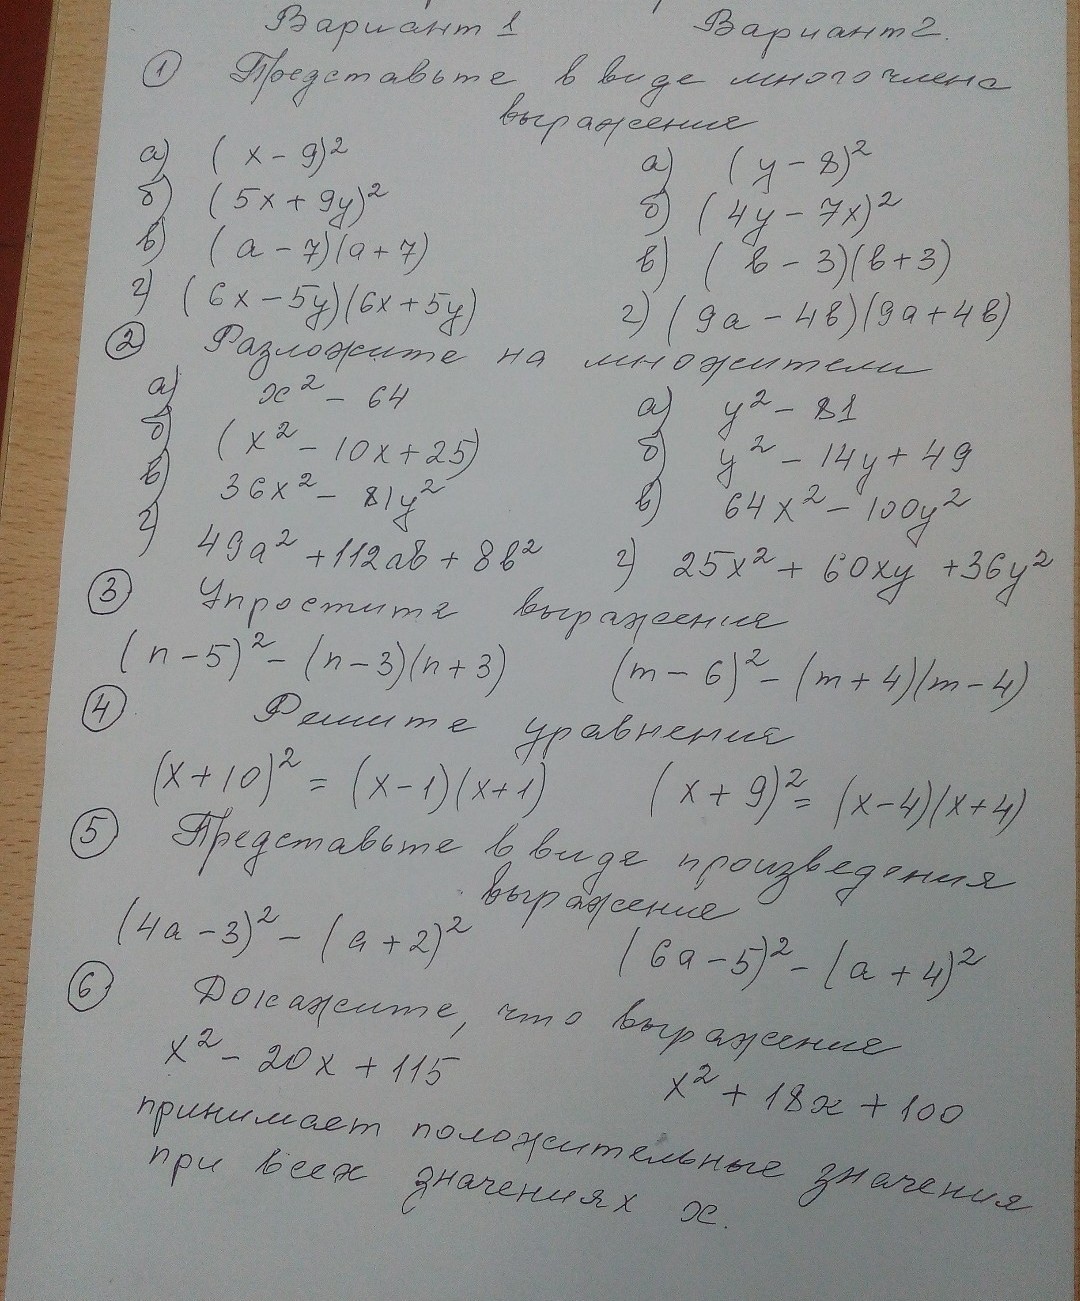 Вариант 1 Вариант 2.
① Представьте в виде многочлена
выражения
а) (x - 9)² а) (y - 8)²
б) (5x + 9y)² б) (4y - 7x)²
в) (a - 7)(a + 7) в) (b - 3)(b + 3)
г) (6x - 5y)(6x + 5y) г) (9a - 4b)(9a + 4b)
② Разложите на множители
а) x² - 64 а) y² - 81
б) (x² - 10x + 25) б) y² - 14y + 49
в) 36x² - 81y² в) 64x² - 100y²
г) 49a² + 112ab + 8b² г) 25x² + 60xy + 36y²
③ Упростите выражения
(n - 5)² - (n - 3)(n + 3) (m - 6)² - (m + 4)(m - 4)
④ Решите уравнения
(x + 10)² = (x - 1)(x + 1) (x + 9)² = (x - 4)(x + 4)
⑤ Представьте в виде произведения
выражение
(4a - 3)² - (a + 2)² (6a - 5)² - (a + 4)²
⑥ Докажите, что выражение
x² - 20x + 115 x² + 18x + 100
принимает положительные значения
при всех значениях x.